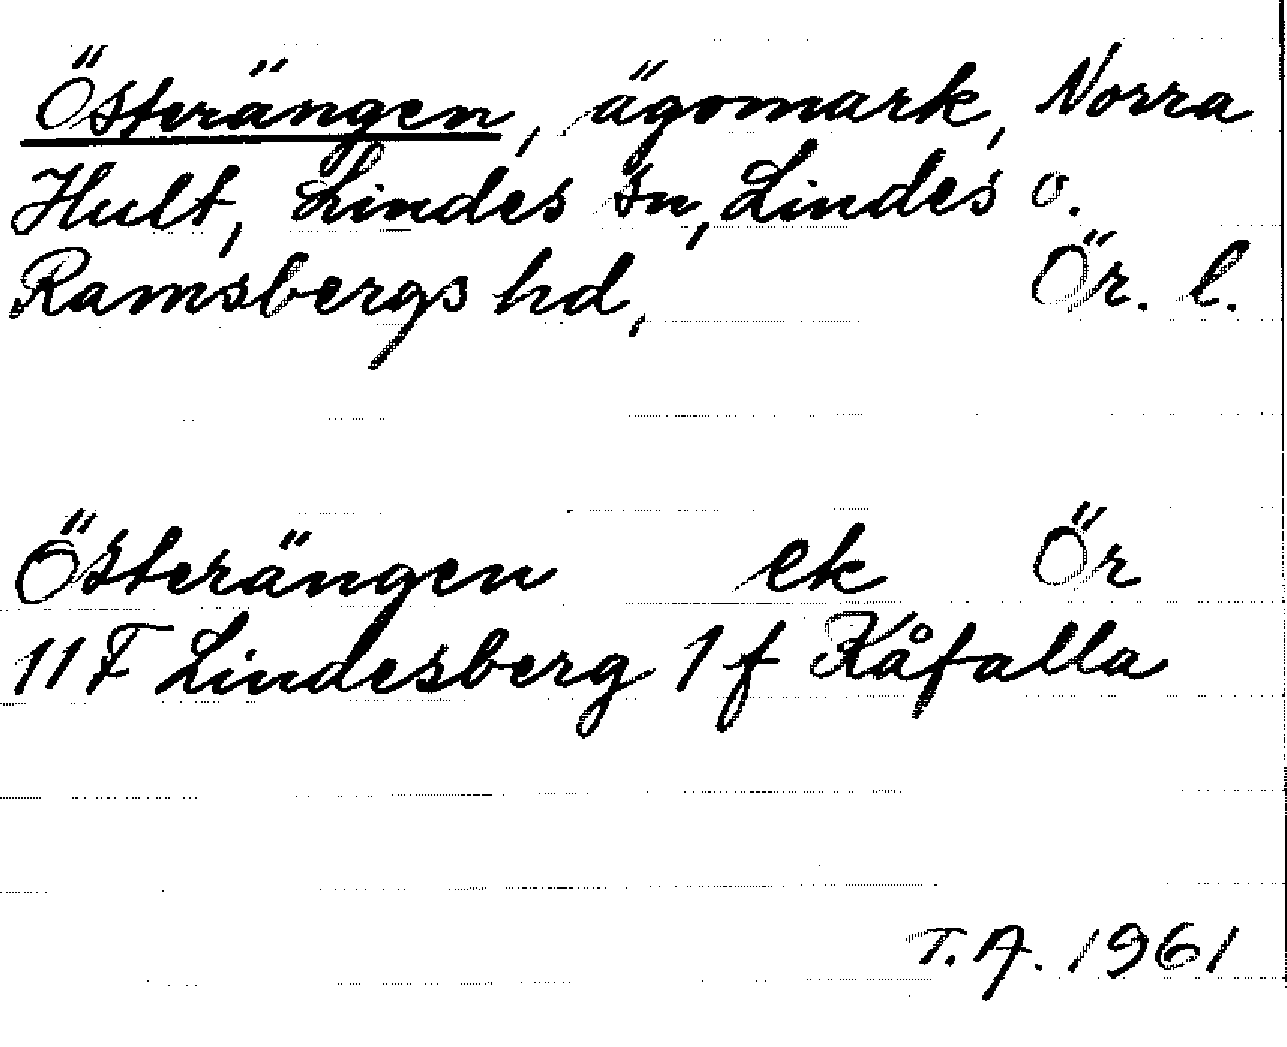 Österängen, ägomark, Norra
Hult, Lindes sn, Lindes o.
Ramsbergs hd, Ör. l.
Österängen ek Ör
11F Lindesberg 1 f Kåfalla
T.A. 1961